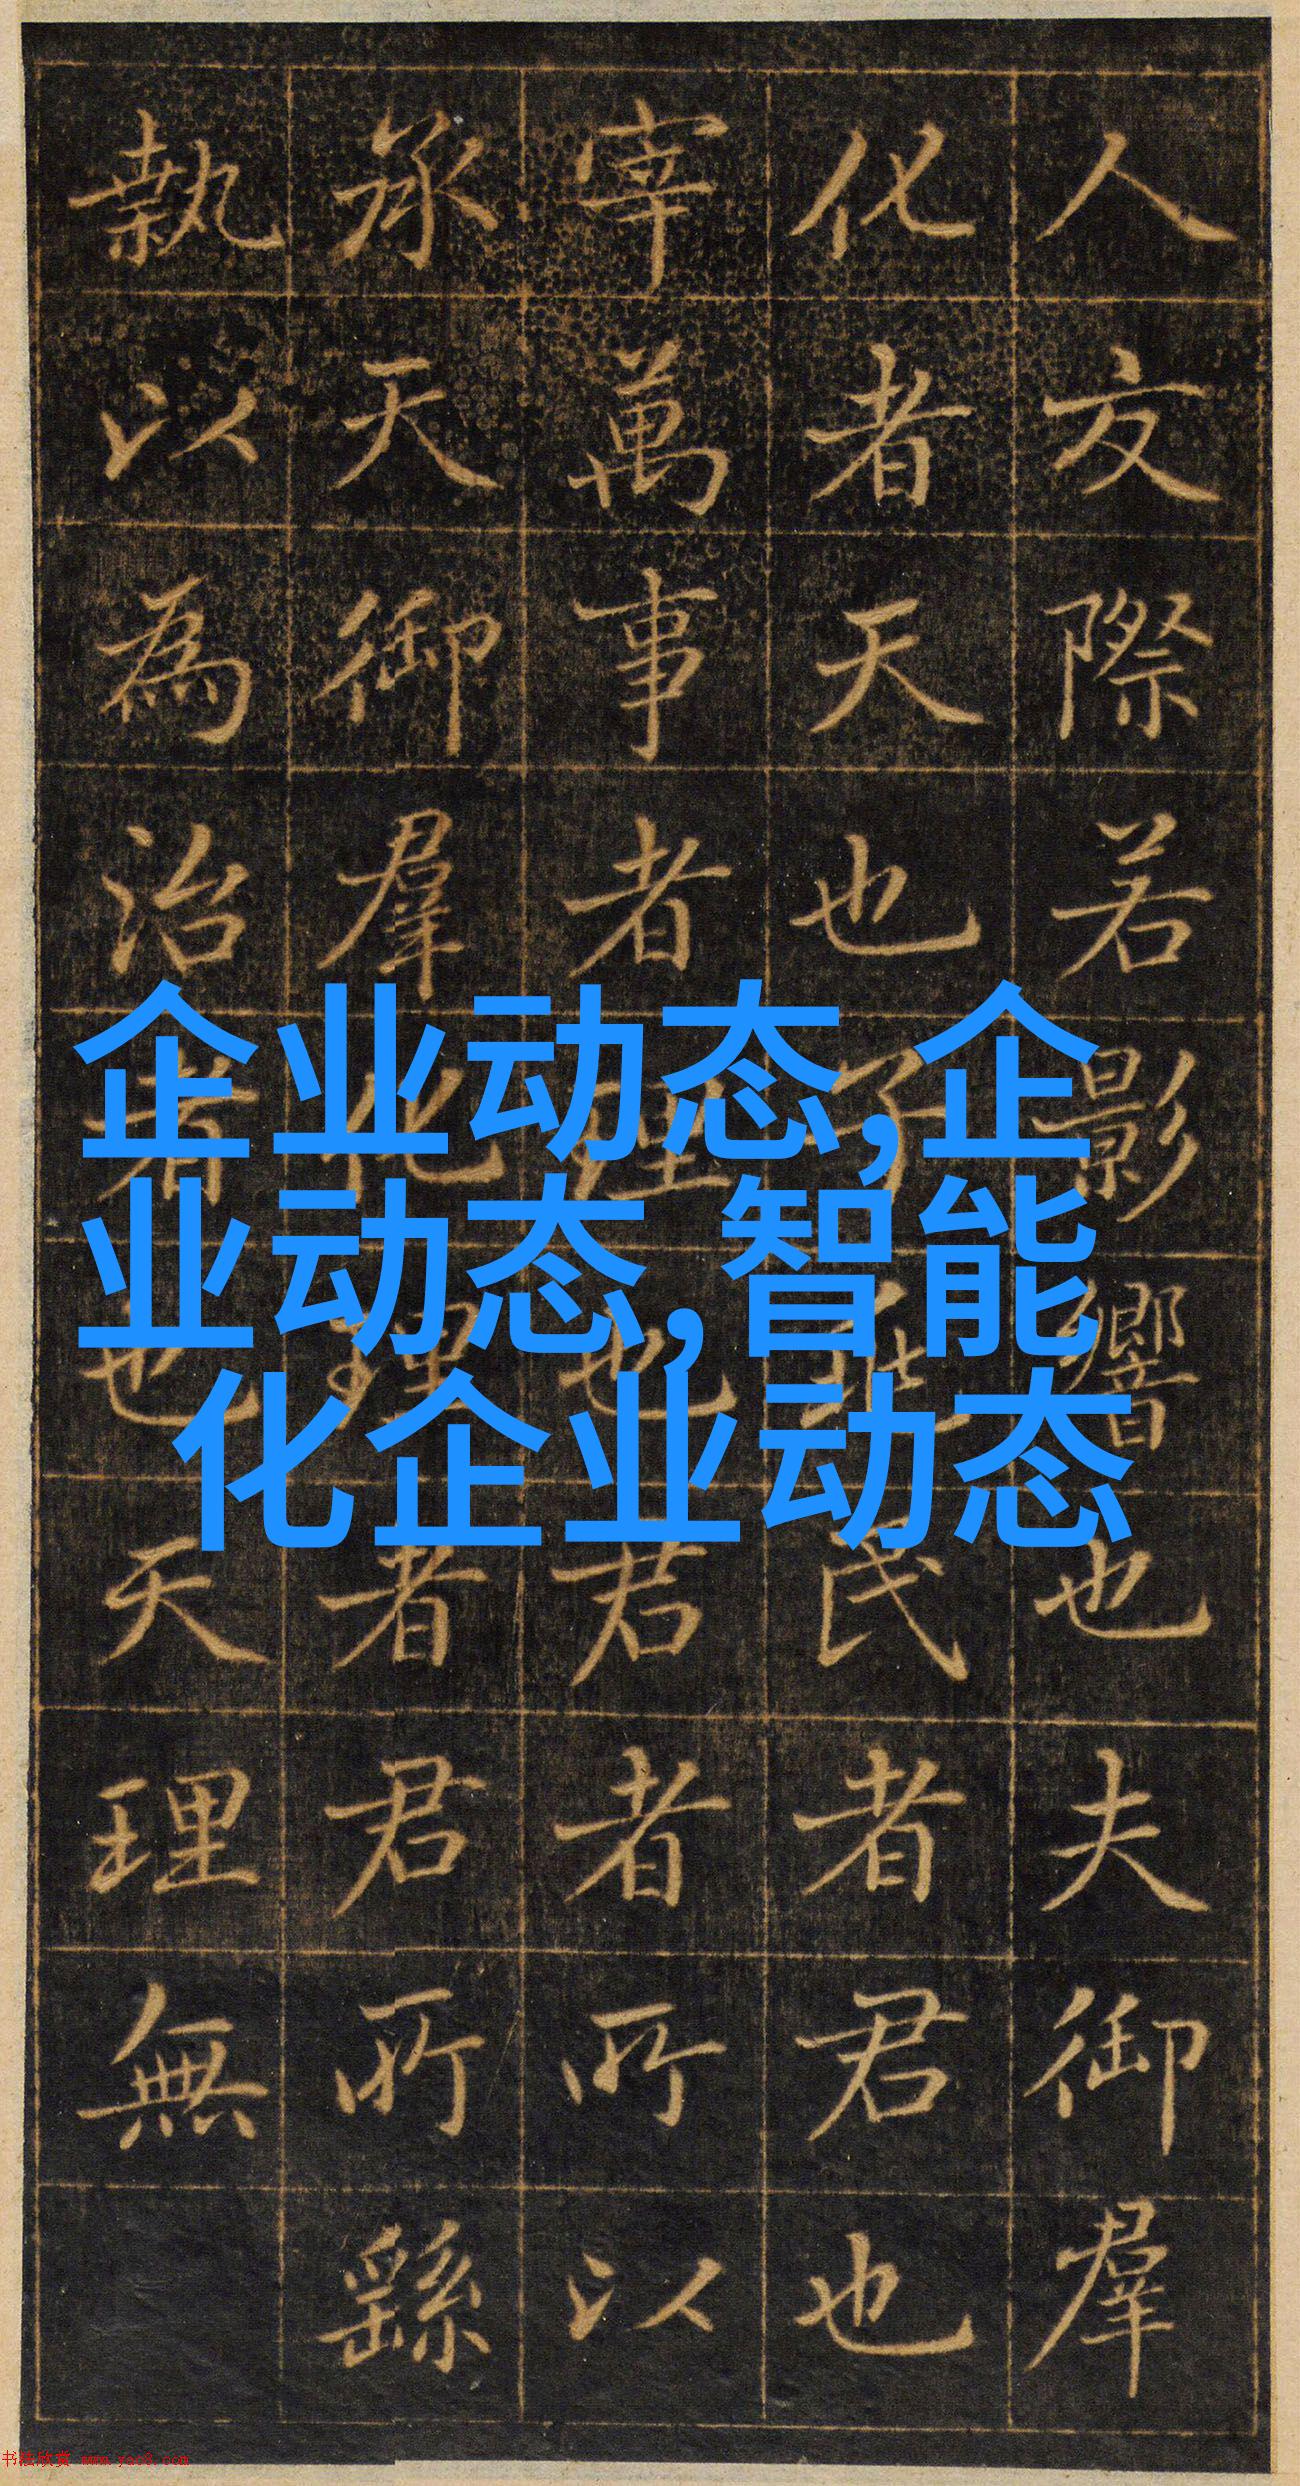 人友際若影響也夫御羣
化者天也子民者君也
宰萬事者理也君者所以
承天御羣化理者君所繇
執以為治者也天理無
企业动态,企
业动态,智能
化企业动态
书法欣赏 www.yac8.com